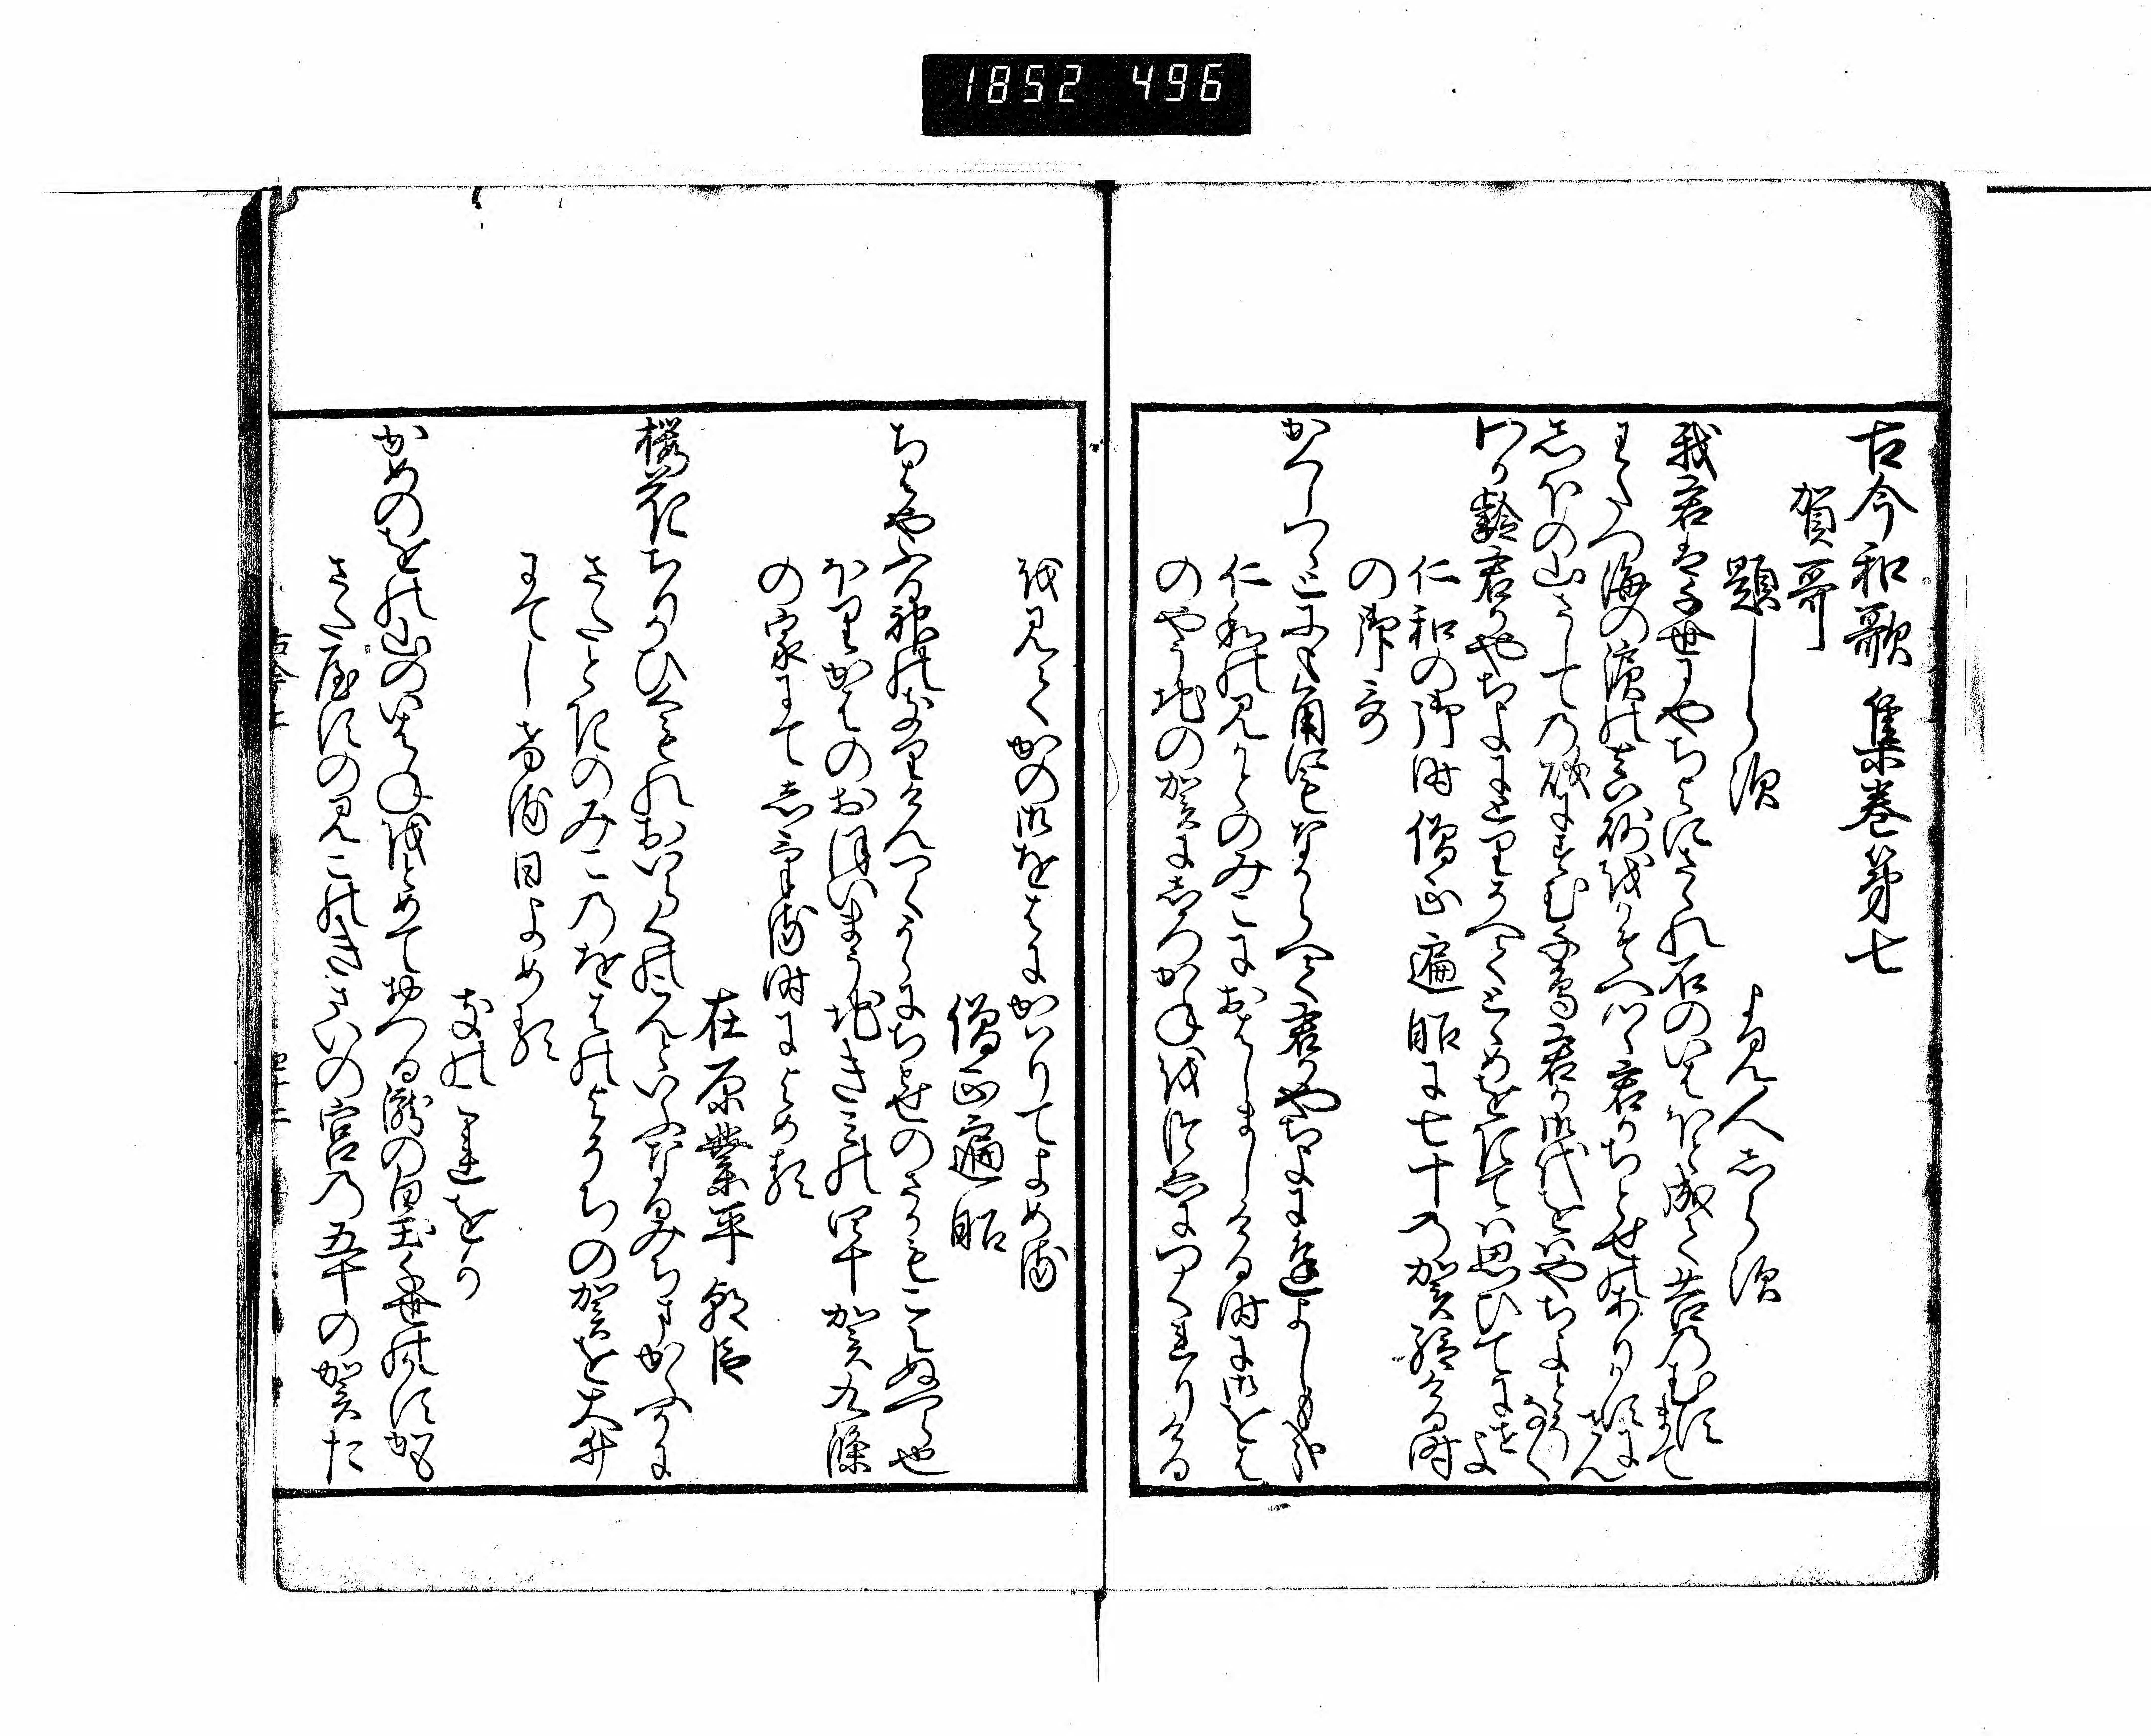 1852 496
古今和歌集巻第七
賀哥
題しらす
よみ人しらす
我君は千世にやちよにさゝれ石のいはほと成て苔のむすまて
わたつ海の濱のま砂をかそへつゝ君かちとせのありかすにせん
しほの山さしての礒にすむ千鳥君か御代をはやちよとそなく
わか齢君かやちよにとりそへてとゝめをきては思ひてにせよ
仁和の御時僧正遍昭に七十の賀給ける時
の御哥
かくしつゝとにもかくにもなからへて君かやちよに逢よしもかな
仁和のみかとのみこにおはしましける時に御をは
のやそちの賀にしろかねをつゑにつくれりける
を見てかの御をはにかはりてよめる
僧正遍昭
ちはやふる神のきりけんつくからにちとせのさかもこえぬへら也
ほりかはのおほいまうちきみの四十賀九條
の家にてしける時によめる
在原業平朝臣
櫻花ちりかひくもれおいらくのこんといふなるみちまかふかに
さたときのみこのをはのよそちの賀を大井
にてしける日よめる
きのこれをか
かめのをの山のいはねをとめておつる瀧の白玉千世のかすかも
さたやすのみこのきさいの宮の五十の賀た